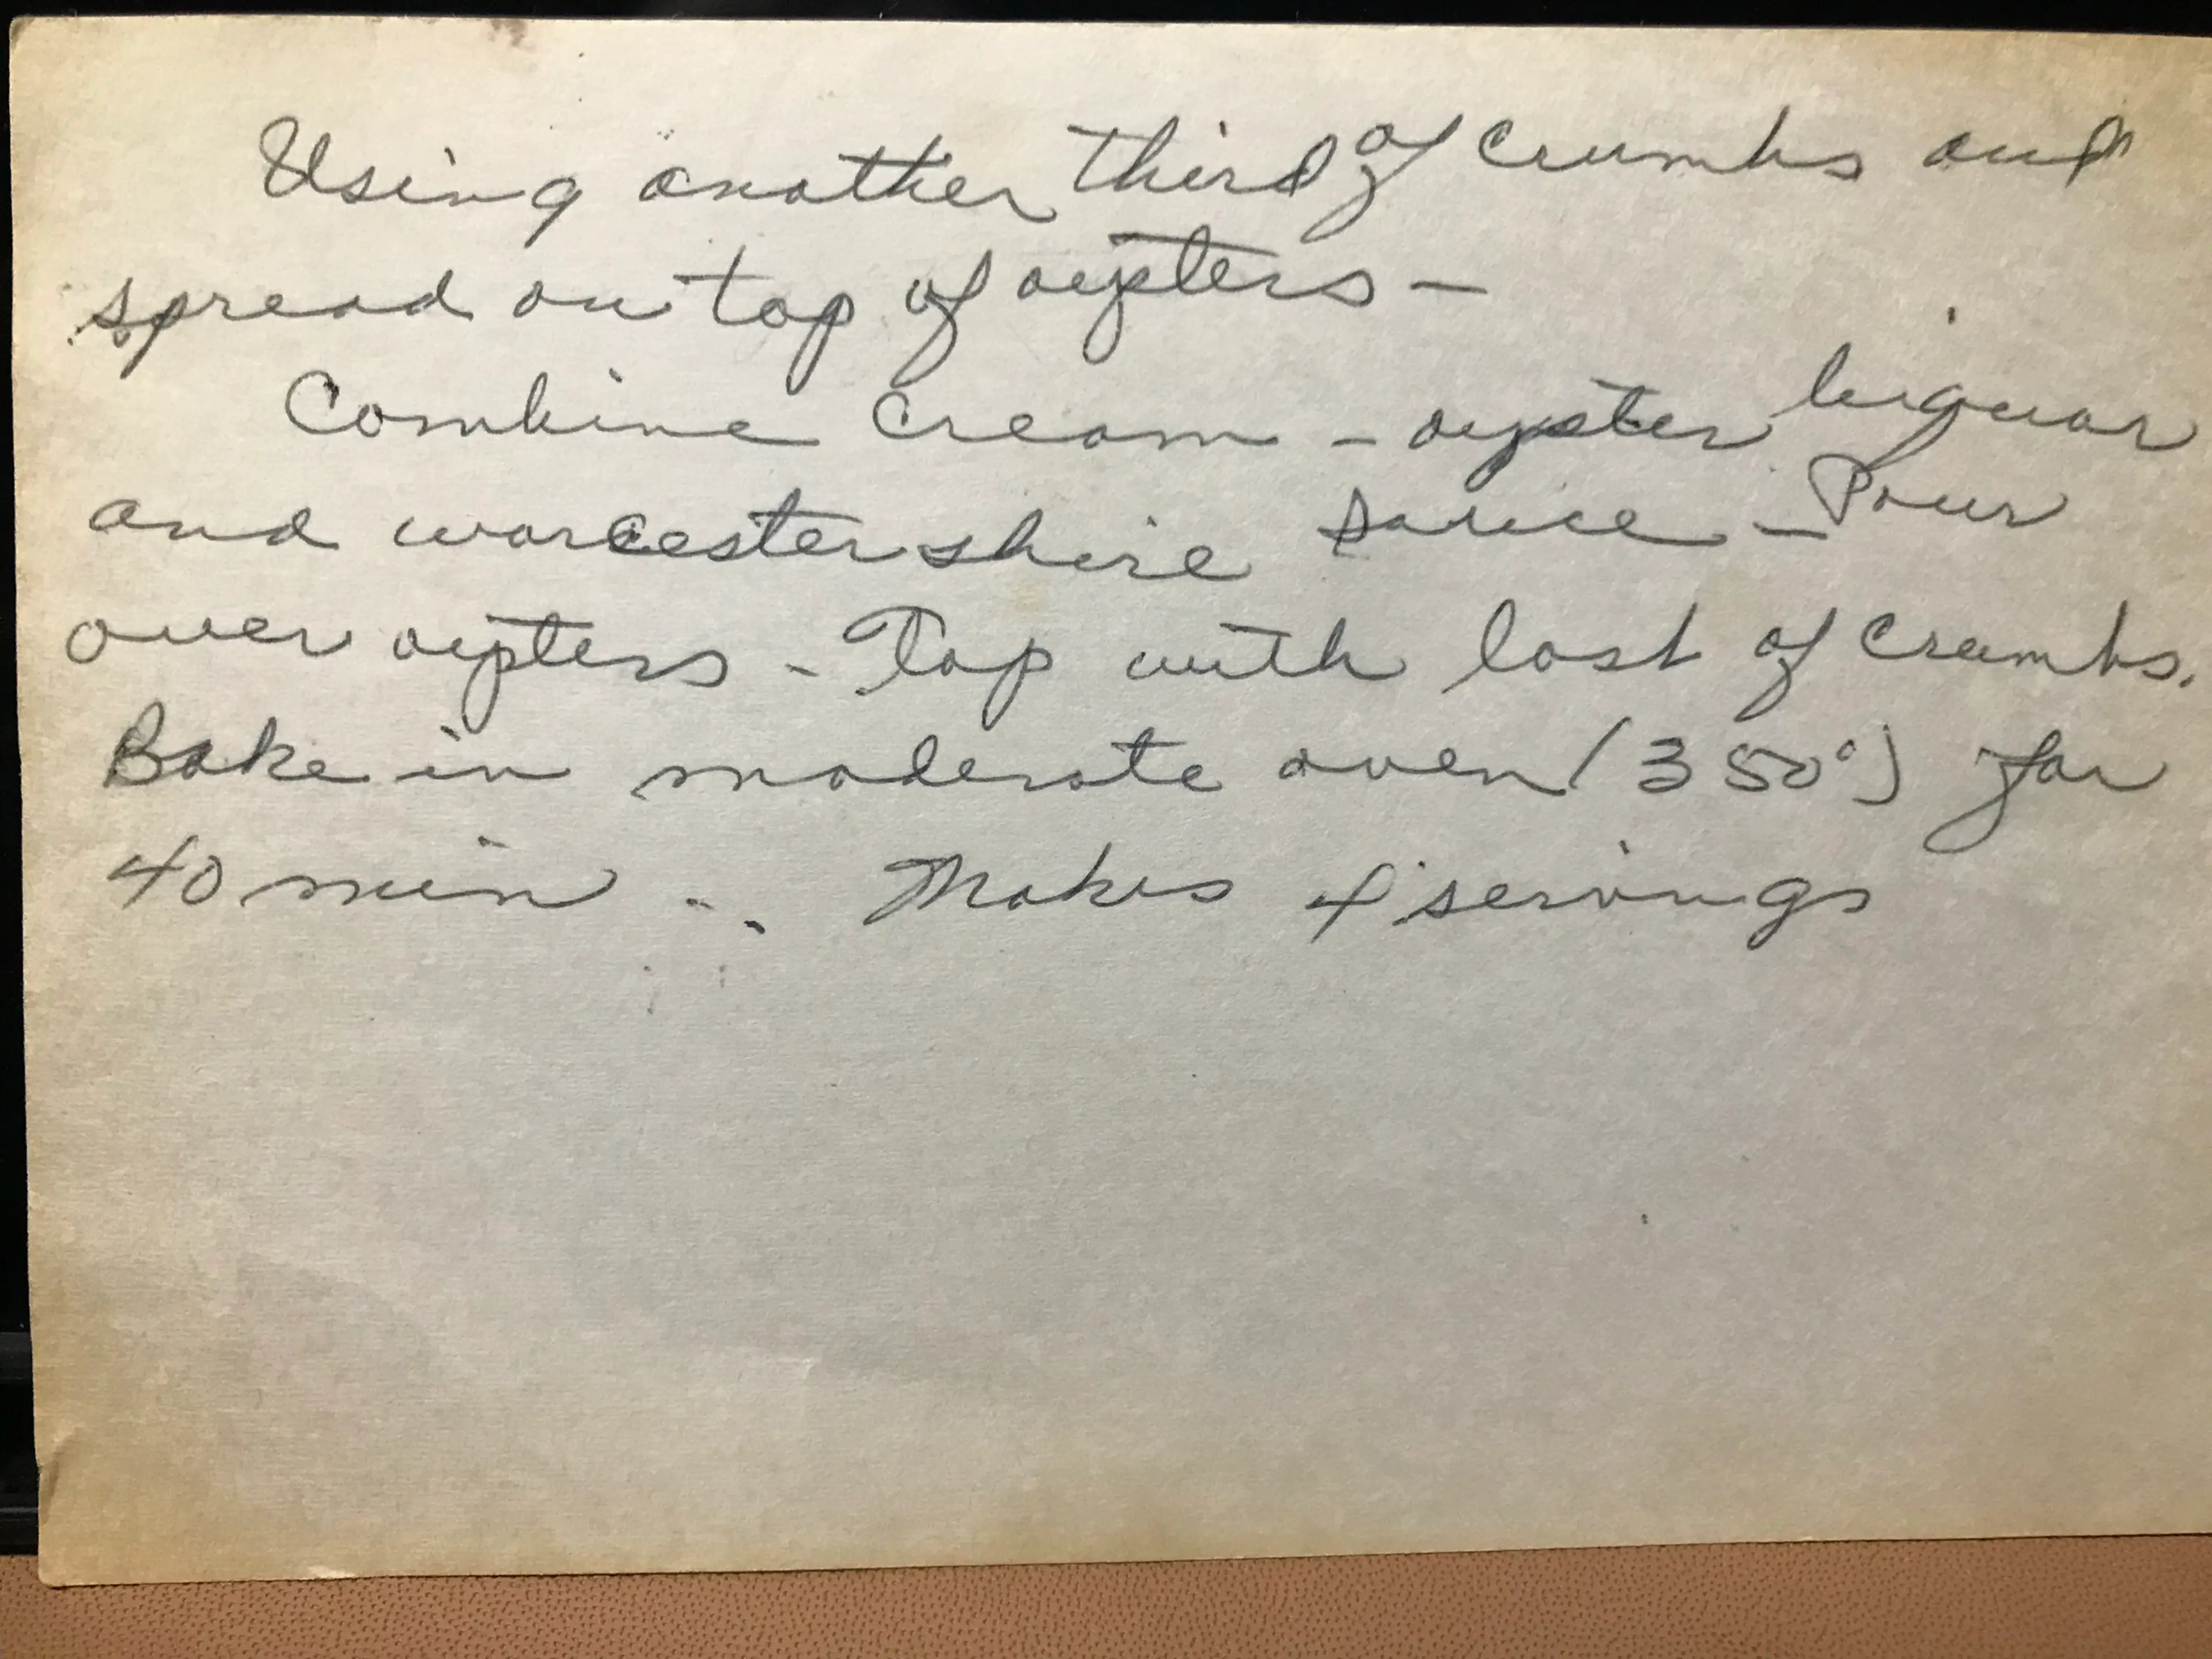 Using another third of crumbs and
spread on top of oysters -
Combine cream - oyster liquor
and worcestershire sauce - Pour
over oysters - Top with last of crumbs.
Bake in moderate oven (350°) for
40 min... Makes 4 servings